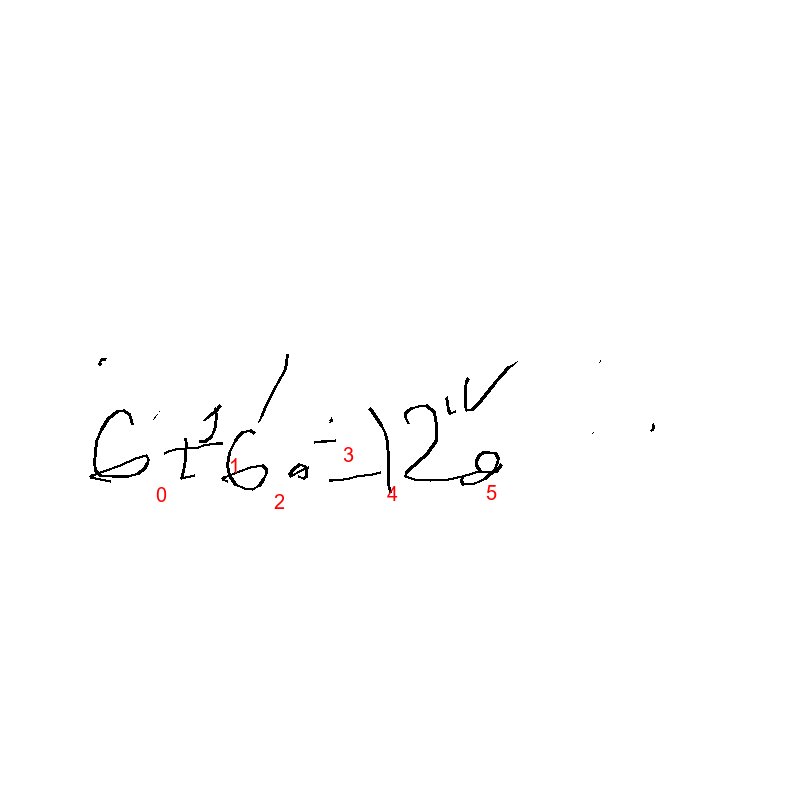 6+6=12
0 1 2 3 4 5